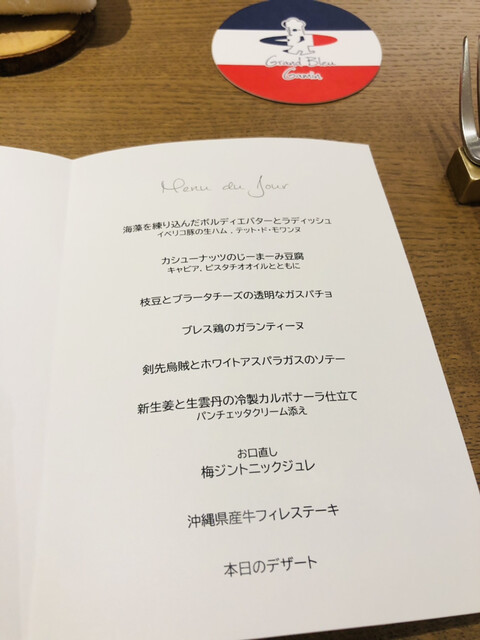 Grand Bleu
Gamin
Menu du Jour
海藻を練り込んだボルディエバターとラディッシュ
イベリコ豚の生ハム , テット・ド・モワンヌ
カシューナッツのじーまーみ豆腐
キャビア, ピスタチオオイルとともに
枝豆とブラータチーズの透明なガスパチョ
ブレス鶏のガランティーヌ
剣先烏賊とホワイトアスパラガスのソテー
新生姜と生雲丹の冷製カルボナーラ仕立て
パンチェッタクリーム添え
お口直し
梅ジントニックジュレ
沖縄県産牛フィレステーキ
本日のデザート